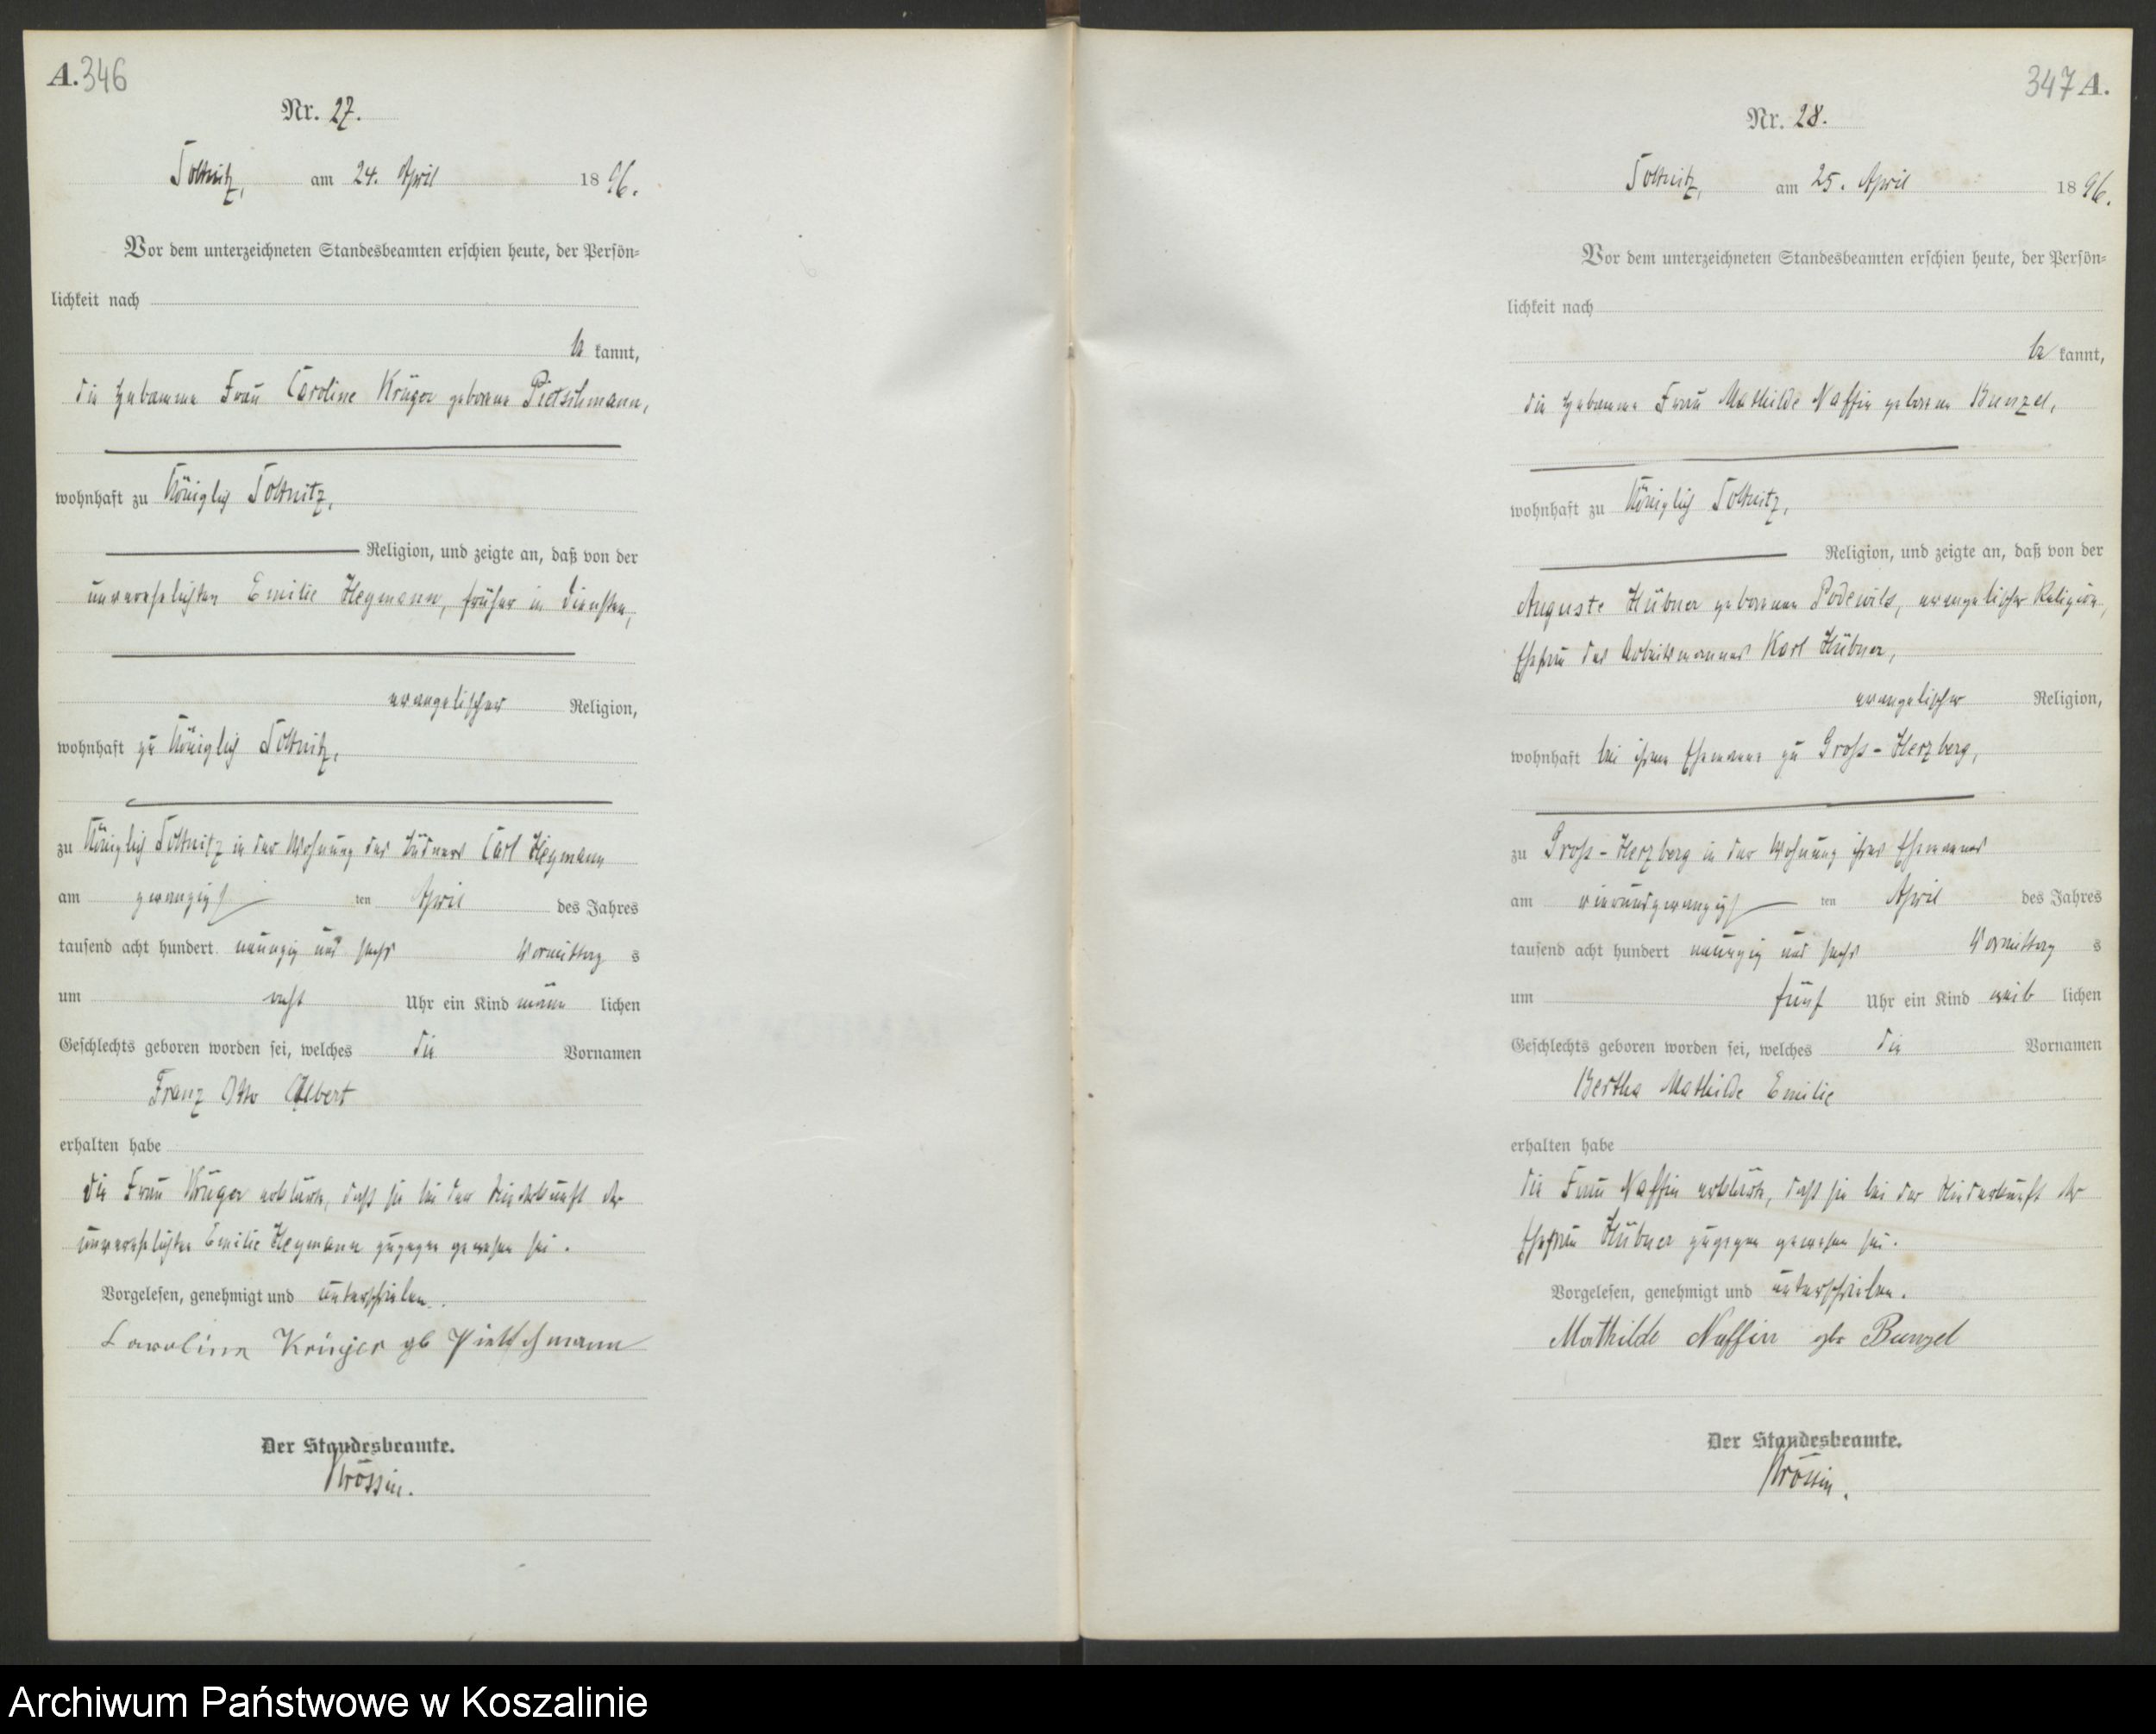 A. 346
Nr. 27.
Soltnitz, am 24. April 1896.
Vor dem unterzeichneten Standesbeamten erschien heute, der Persön-
lichkeit nach
be kannt,
die Hebamme Frau Caroline Krüger geborene Pietschmann,
wohnhaft zu Königlich Soltnitz,
Religion, und zeigte an, daß von der
unverehelichten Emilie Heymann, früher in Diensten,
evangelischer Religion,
wohnhaft zu Königlich Soltnitz,
zu Königlich Soltnitz in der Wohnung des Büdners Carl Heymann
am zwanzigsten April des Jahres
tausend acht hundert neunzig und sechs Vormittag s
um acht Uhr ein Kind männ lichen
Geschlechts geboren worden sei, welches die Vornamen
Franz Otto Albert
erhalten habe
Die Frau Krüger erklärte, daß sie bei der Niederkunft der
unverehelichten Emilie Heymann zugegen gewesen sei.
Vorgelesen, genehmigt und unterschrieben.
Karoline Krüger gb Pietschmann
Der Standesbeamte.
Krössin.
347 A.
Nr. 28.
Soltnitz, am 25. April 1896.
Vor dem unterzeichneten Standesbeamten erschien heute, der Persön-
lichkeit nach
be kannt,
die Hebamme Frau Mathilde Naffin geborene Bunzel,
wohnhaft zu Königlich Soltnitz,
Religion, und zeigte an, daß von der
Auguste Hübner geborenen Podewils, evangelischer Religion,
Ehefrau des Arbeitsmannes Karl Hübner,
evangelischer Religion,
wohnhaft bei ihrem Ehemanne zu Groß-Herzberg,
zu Groß-Herzberg in der Wohnung ihres Ehemannes
am einundzwanzigsten April des Jahres
tausend acht hundert neunzig und sechs Vormittag s
um fünf Uhr ein Kind weib lichen
Geschlechts geboren worden sei, welches die Vornamen
Bertha Mathilde Emilie
erhalten habe
Die Frau Naffin erklärte, daß sie bei der Niederkunft der
Ehefrau Hübner zugegen gewesen sei.
Vorgelesen, genehmigt und unterschrieben.
Mathilde Naffin gbr Bunzel
Der Standesbeamte.
Krössin.
Archiwum Państwowe w Koszalinie